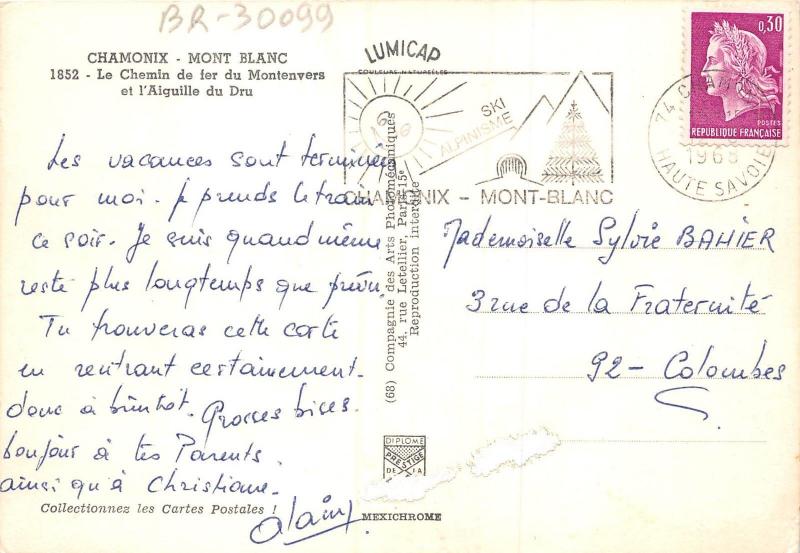 BR-30099
CHAMONIX - MONT BLANC
1852 - Le Chemin de fer du Montenvers
et l'Aiguille du Dru
LUMICAP
COULEURS NATURELLES
SKI
ALPINISME
CHAMONIX - MONT-BLANC
0,30
POSTES
REPUBLIQUE FRANÇAISE
74
1968
HAUTE SAVOIE
Les vacances sont terminées
pour moi. je prends le train
ce soir. Je suis quand même
resté plus longtemps que prévu.
Tu trouveras cette carte
en rentrant certainement.
donc à bientôt. Grosses bises.
bonjour à tes Parents
ainsi qu'à Christiane.
alain
Mademoiselle Sylvie BAHIER
3 rue de la Fraternité
92 - Colombes
(68) Compagnie des Arts Photomécaniques
44, rue Letellier, Paris-15e
Reproduction interdite
DIPLOME
PRESTIGE
DE LA
Collectionnez les Cartes Postales !
MEXICHROME